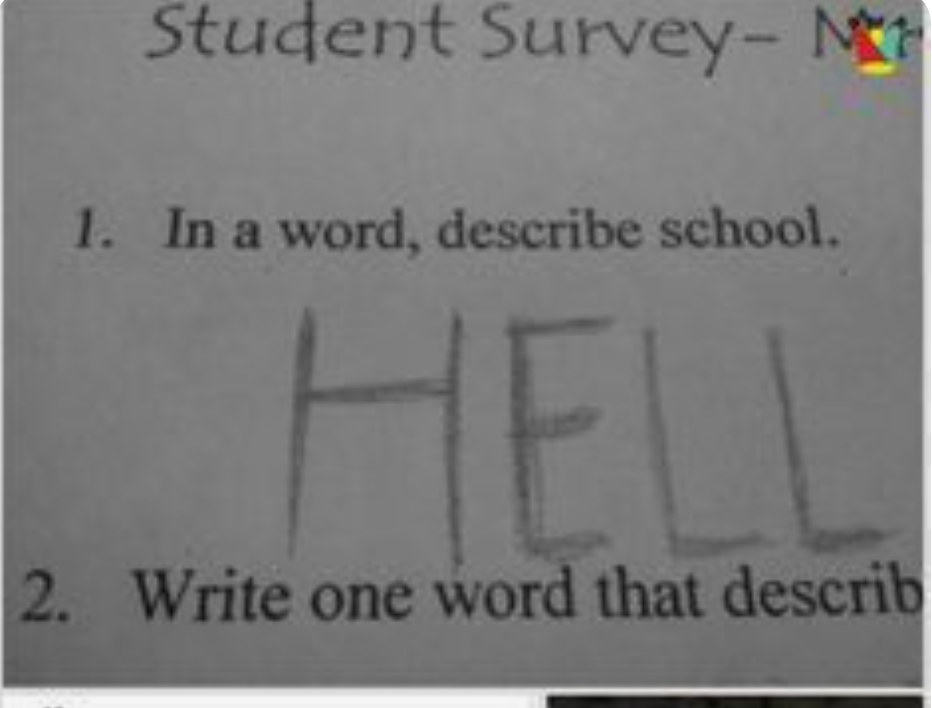 Student Survey-
1. In a word, describe school.
HELL
2. Write one word that describ